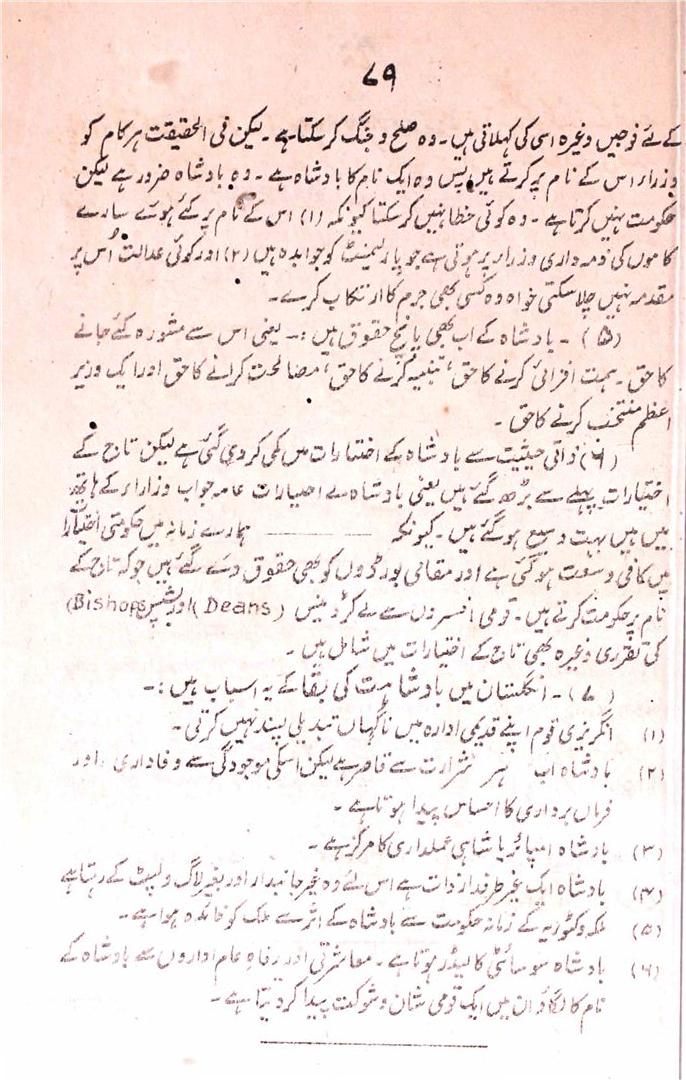 ۷۹
کے لئے فوجیں وغیرہ اسی کی کہلاتی ہیں۔ وہ صلح و جنگ کر سکتا ہے۔ لیکن فی الحقیقت ہر کام کو
وزراء اس کے نام پر کرتے ہیں پس وہ ایک نام کا بادشاہ ہے۔ وہ بادشاہ ضرور ہے لیکن
حکومت نہیں کرتا ہے۔ وہ کوئی خطا نہیں کر سکتا کیونکہ (۱) اس کے نام پر کئے ہوئے سارے
کاموں کی ذمہ داری وزراء پر ہوتی ہے جو پارلیمنٹ کو جوابدہ ہیں (۲) اور کوئی عدالت اُس پر
مقدمہ نہیں چلا سکتی خواہ وہ کسی بھی جرم کا ارتکاب کرے۔
(۵)۔ بادشاہ کے اب بھی پانچ حقوق ہیں :۔ یعنی اس سے مشورہ کئے جانے
کا حق۔ ہمت افزائی کرنے کا حق، تنبیہ کرنے کا حق، مصالحت کرانے کا حق اور ایک وزیر
اعظم منتخب کرنے کا حق۔
(۶) ذاتی حیثیت سے بادشاہ کے اختیارات میں کمی کر دی گئی ہے لیکن تاج کے
اختیارات پہلے سے بڑھ گئے ہیں یعنی بادشاہ کے اختیارات عامہ جواب وزاراء کے ہاتھ
میں ہیں بہت وسیع ہو گئے ہیں۔ کیونکہ ہمارے زمانہ میں حکومتی اختیارات
میں کافی وسعت ہو گئی ہے اور مقامی بورڈوں کو بھی حقوق دے گئے ہیں جو کہ تاج کے
نام پر حکومت کرتے ہیں۔ قومی افسروں سے لے کر ڈینس (Deans) اور بشپس (Bishops)
کی تقرری وغیرہ بھی تاج کے اختیارات میں شامل ہیں۔
(۷)۔ انگلستان میں بادشاہت کی بقا کے یہ اسباب ہیں :۔
(۱) انگریزی قوم اپنے قدیمی ادارہ میں ناگہاں تبدیلی پسند نہیں کرتی۔
(۲) بادشاہ اب ہر شرارت سے قاصر ہے لیکن اسکی موجودگی سے وفاداری اور
فرماں برداری کا احساس پیدا ہوتا ہے۔
(۳) بادشاہ امپائر یا شاہی عملداری کا مرکز ہے۔
(۴) بادشاہ ایک غیر طرفدار ذات ہے اس لئے وہ غیر جانبدار اور بغیر لاگ ولپٹ کے رہتا ہے
(۵) ملکہ وکٹوریہ کے زمانہ حکومت سے بادشاہ کے اثر سے ملک کو فائدہ ہوا ہے۔
(۶) بادشاہ سوسائٹی کا لیڈر ہوتا ہے۔ معاشرتی اور رفاہِ عام اداروں سے بادشاہ کے
نام کا لگاؤ ان میں ایک قومی شان و شوکت پیدا کر دیتا ہے۔